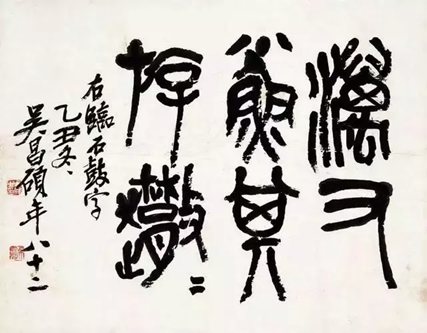 澫又
小魚其
斿
右臨石鼓字
乙丑冬、
吳昌碩年八十二